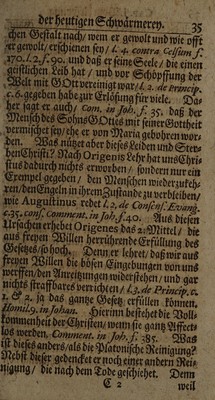 der heutigen Schwärmerey. 35
chen Gestalt nach/ wem er gewolt und wie offt
er gewolt/ erschienen sey/ l. 4. contra Celsum f.
170. l. 2. f. 90. und daß er seine Seele/ die einen
geistlichen Leib hat/ und vor Schöpffung der
Welt mit GOtt vereiniget war/ l. 2. de princip.
c. 6. gegeben habe zur Erlösung für viele. Da-
her sagt er auch/ Com. in Joh. f. 35. daß der
Mensch des Sohns GOttes mit seiner Gottheit
vermischet sey/ ehe er von Maria gebohren wor-
den. Was nützet aber dieses Leiden und Ster-
ben Christi? Nach Origenis Lehr hat uns Chri-
stus dadurch nichts erworben/ sondern nur ein
Exempel gegeben/ den Menschen wiederzukeh-
ren/ den Engeln in ihrem Zustande zu verbleiben/
wie Augustinus redet l. 2. de Consens. Evang.
c. 35. conf. comment. in Joh. f. 40. Aus diesen
Ursachen erhebet Origenes das 2. Mittel/ die
aus freyen Willen herrührende Erfüllung des
Gesetzes/ so hoch. Denn er lehret/ daß wir aus
freyen Willen die bösen Eingebungen von uns
werffen/ den Anreitzungen widerstehen/ und gar
nichts straffbares verrichten/ l. 3. de Princip. c.
1. & 2. ja das gantze Gesetz erfüllen können,
Homil. 9. in Johan. Hierinn bestehet die Voll-
kommenheit der Christen/ wenn sie gantz Affect-
los werden, Comment. in Joh. f. 385. Was
ist dieses anders/ als die Platonische Reinigung?
Nebst dieser gedencket er noch einer andern Rei-
nigung/ die nach dem Tode geschiehet. Denn
C 2 weil